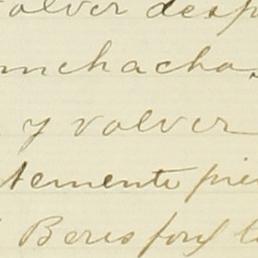 volver desp
muchacho.
y volver
temente pie
Beresford l